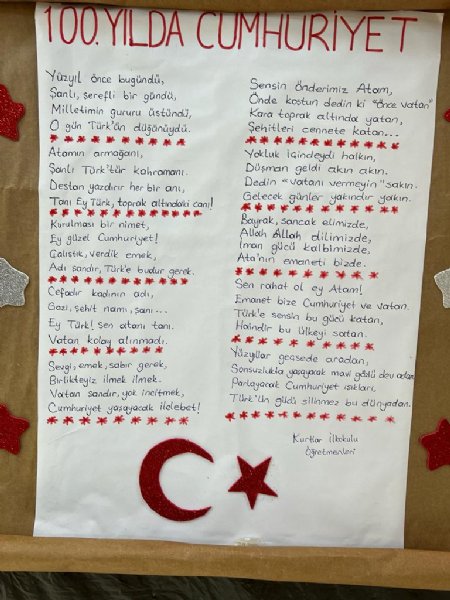 100. YILDA CUMHURİYET
Yüzyıl önce bugündü,
Şanlı, şerefli bir gündü,
Milletimin gururu üstündü,
O gün Türk'ün düğünüydü.
Atamın armağanı,
Şanlı Türk'tür kahramanı.
Destan yazdırır her bir anı,
Tanı Ey Türk, toprak altındaki canı!
Kurulması bir nimet,
Ey güzel Cumhuriyet!
Çalıştık, verdik emek,
Adı sandır, Türk'e budur gerek.
Cefadır kadının adı,
Gazi, şehit namı, sanı...
Ey Türk! Sen atanı tanı.
Vatan kolay alınmadı.
Sevgi, emek, sabır gerek,
Birlikteyiz ilmek ilmek.
Vatan sandır, yok incitmek,
Cumhuriyet yaşayacak ilelebet!
Sensin önderimiz Atam,
Önde koştun dedin ki "Önce Vatan"
Kara toprak altında yatan,
Şehitleri cennete katan...
Yokluk içindeydi halkın,
Düşman geldi akın akın.
Dedin "Vatanı vermeyin" sakın.
Gelecek günler yakındır yakın.
Bayrak, sancak elimizde,
Allah Allah dilimizde,
İman gücü kalbimizde,
Ata'nın emaneti bizde.
Sen rahat ol ey Atam!
Emanet bize Cumhuriyet ve vatan.
Türk'e sensin bu gücü katan,
Haindir bu ülkeyi satan.
Yüzyıllar geçsede aradan,
Sonsuzlukta yaşayacak mavi gözlü dev adam
Parlayacak Cumhuriyet ışıkları.
Türk'ün gücü silinmez bu dünyadan.
Kurtlar İlkokulu
Öğretmenleri